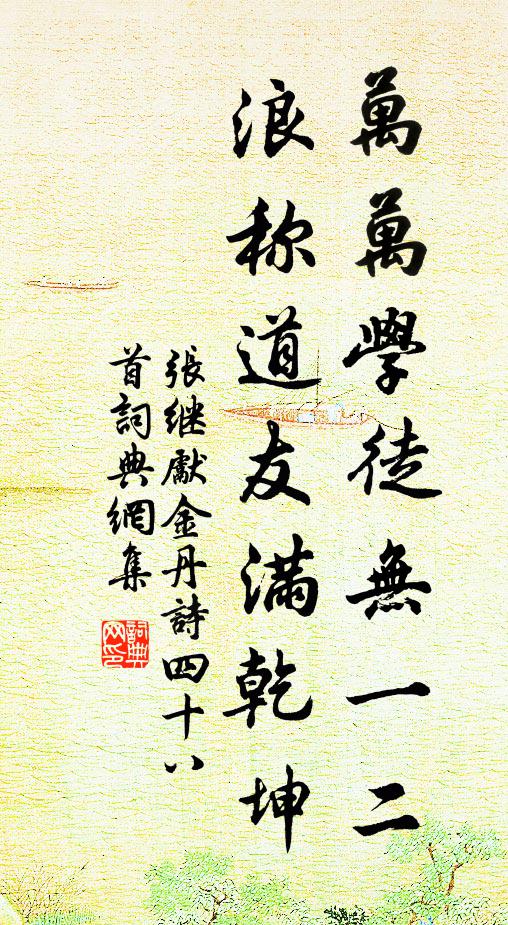 萬萬學徒無一二
浪称道友满乾坤
張继獻金丹詩四十八
首詞典網集
詞典網印